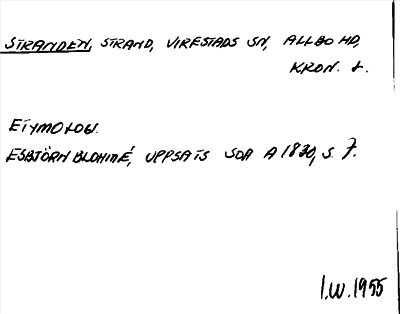 STRANDEN, STRAND, VIRESTADS SN, ALLBO HD,
KRON. L.
ETYMOLOG.
ESBJÖRN BLOHMÉ, UPPSATS SOA A 1830, S. 7.
I.W. 1955